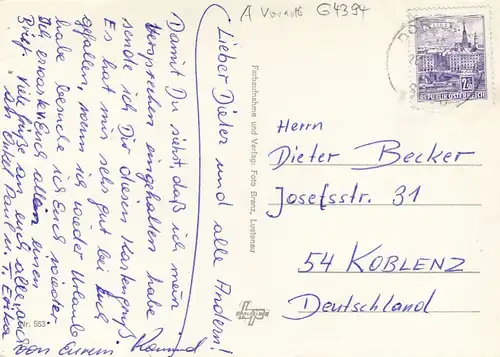 A Vorarlb G4394
Lieber Dieter und alle Andern!
Damit Du siehst, daß ich mein
Versprechen eingehalten habe
sende ich Dir diesen Kartengruß
Es hat mir sehr gut bei Euch
gefallen, wenn ich wieder Urlaub
habe besuche ich Euch wieder
Ich erwarte von Euch allen einen
Brief. Viele Grüße an euch alle, auch
an Onkel Paul u. T. Erika
von Eurem Konrad
Farbaufnahme und Verlag: Foto Branz, Lustenau
Nr. 553
REPUBLIK ÖSTERREICH
Herrn
Dieter Becker
Josefsstr. 31
54 KOBLENZ
Deutschland